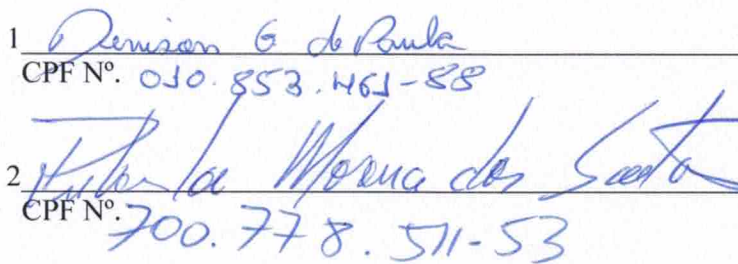 1 Denison G de Paula
CPF Nº. 010.853.461-88
2 Morena dos Santos
CPF Nº. 700.778.511-53